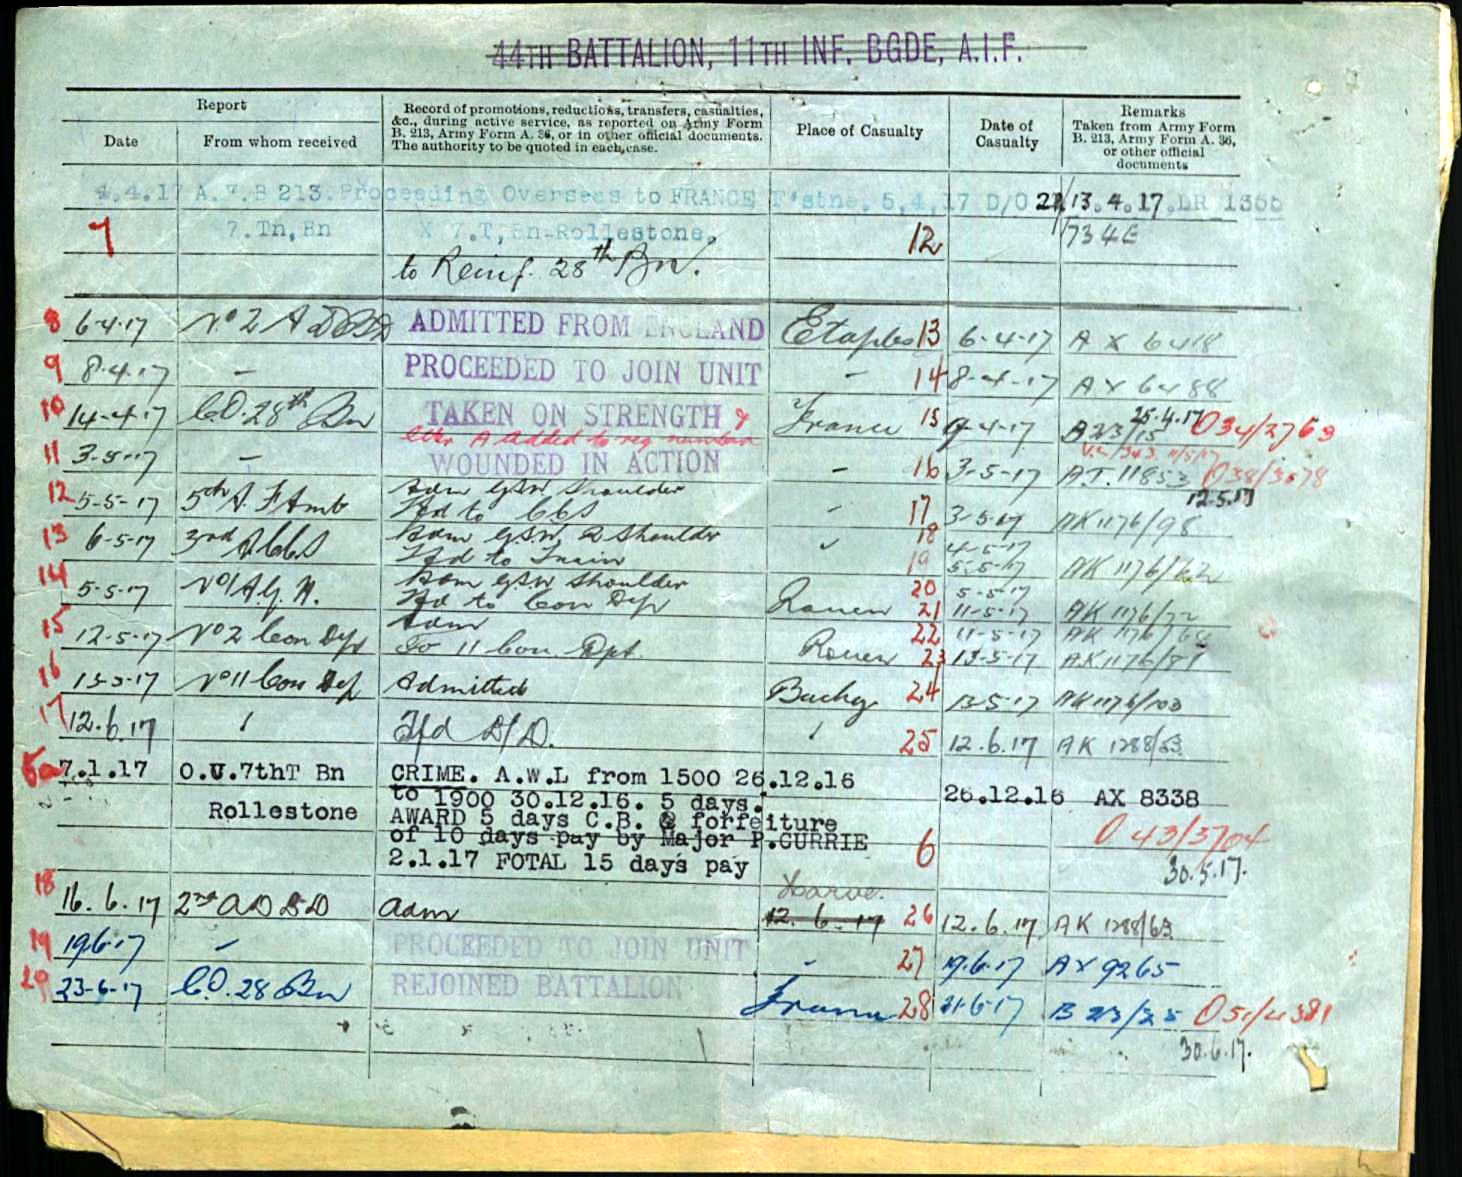 44TH BATTALION, 11TH INF. BGDE, A.I.F.
Report
Date
From whom received
Record of promotions, reductions, transfers, casualties,
&c., during active service, as reported on Army Form
B. 213, Army Form A. 36, or in other official documents.
The authority to be quoted in each case.
Place of Casualty
Date of
Casualty
Remarks
Taken from Army Form
B. 213, Army Form A. 36,
or other official
documents
4.4.17 A.F.B 213. Proceeding Overseas to FRANCE F'stne. 5,4,17 D/O 22/13.4.17.DR 1366
7 7.Tn,Bn X 7.T,Bn-Rollestone, 12 734E
to Reinf. 28th Bn.
8 6-4-17 No 2 A D B D ADMITTED FROM ENGLAND Etaples 13 6-4-17 A X 6418
9 8-4-17 - PROCEEDED TO JOIN UNIT - 14 8-4-17 AX 6488
10 14-4-17 C.O. 28th Bn TAKEN ON STRENGTH & France 15 9-4-17 B 213/15 25.4.17 O 34/2769
letter A added to reg number
11 3-5-17 - WOUNDED IN ACTION - 16 3-5-17 A.T. 11853 O 38/3078
12.5.17
12 5-5-17 5th A. F Amb Adm GSW Shoulder
Tfd to CCS - 17 3-5-17 AK 1176/98
13 6-5-17 3rd A CCS Adm GSW R Shoulder 18 4-5-17
Tfd to Train 19 5-5-17 AK 1176/62
14 5-5-17 No 1 A.G.H. Adm GSW Shoulder 20 5-5-17
Tfd to Con Dep Rouen 21 11-5-17 AK 1176/72
15 12-5-17 No 2 Con Dep Adm 22 11-5-17 AK 1176/68
To 11 Con. Dpt. Rouen 23 13-5-17 AK 1176/81
16 13-5-17 No 11 Con Dep Admitted Buchy 24 13-5-17 AK 1176/103
17 12.6.17 Tfd B/D. 25 12.6.17 AK 1288/63
5a 7.1.17 O.U.7thT Bn CRIME. A.W.L from 1500 26.12.16
to 1900 30.12.16. 5 days. 26.12.16 AX 8338
Rollestone AWARD 5 days C.B. @ forfeiture
of 10 days pay by Major P.CURRIE O 43/3704
2.1.17 FOTAL 15 days pay 6 30.5.17.
18 16.6.17 2nd A D B D Adm Havre. 12.6.17 26 12.6.17 AK 1288/63
19 19.6.17 - PROCEEDED TO JOIN UNIT - 27 19.6.17 AX 9265
20 23-6-17 C.O. 28 Bn REJOINED BATTALION France 28 21-6-17 B 213/25 O 51/4381
30.6.17.